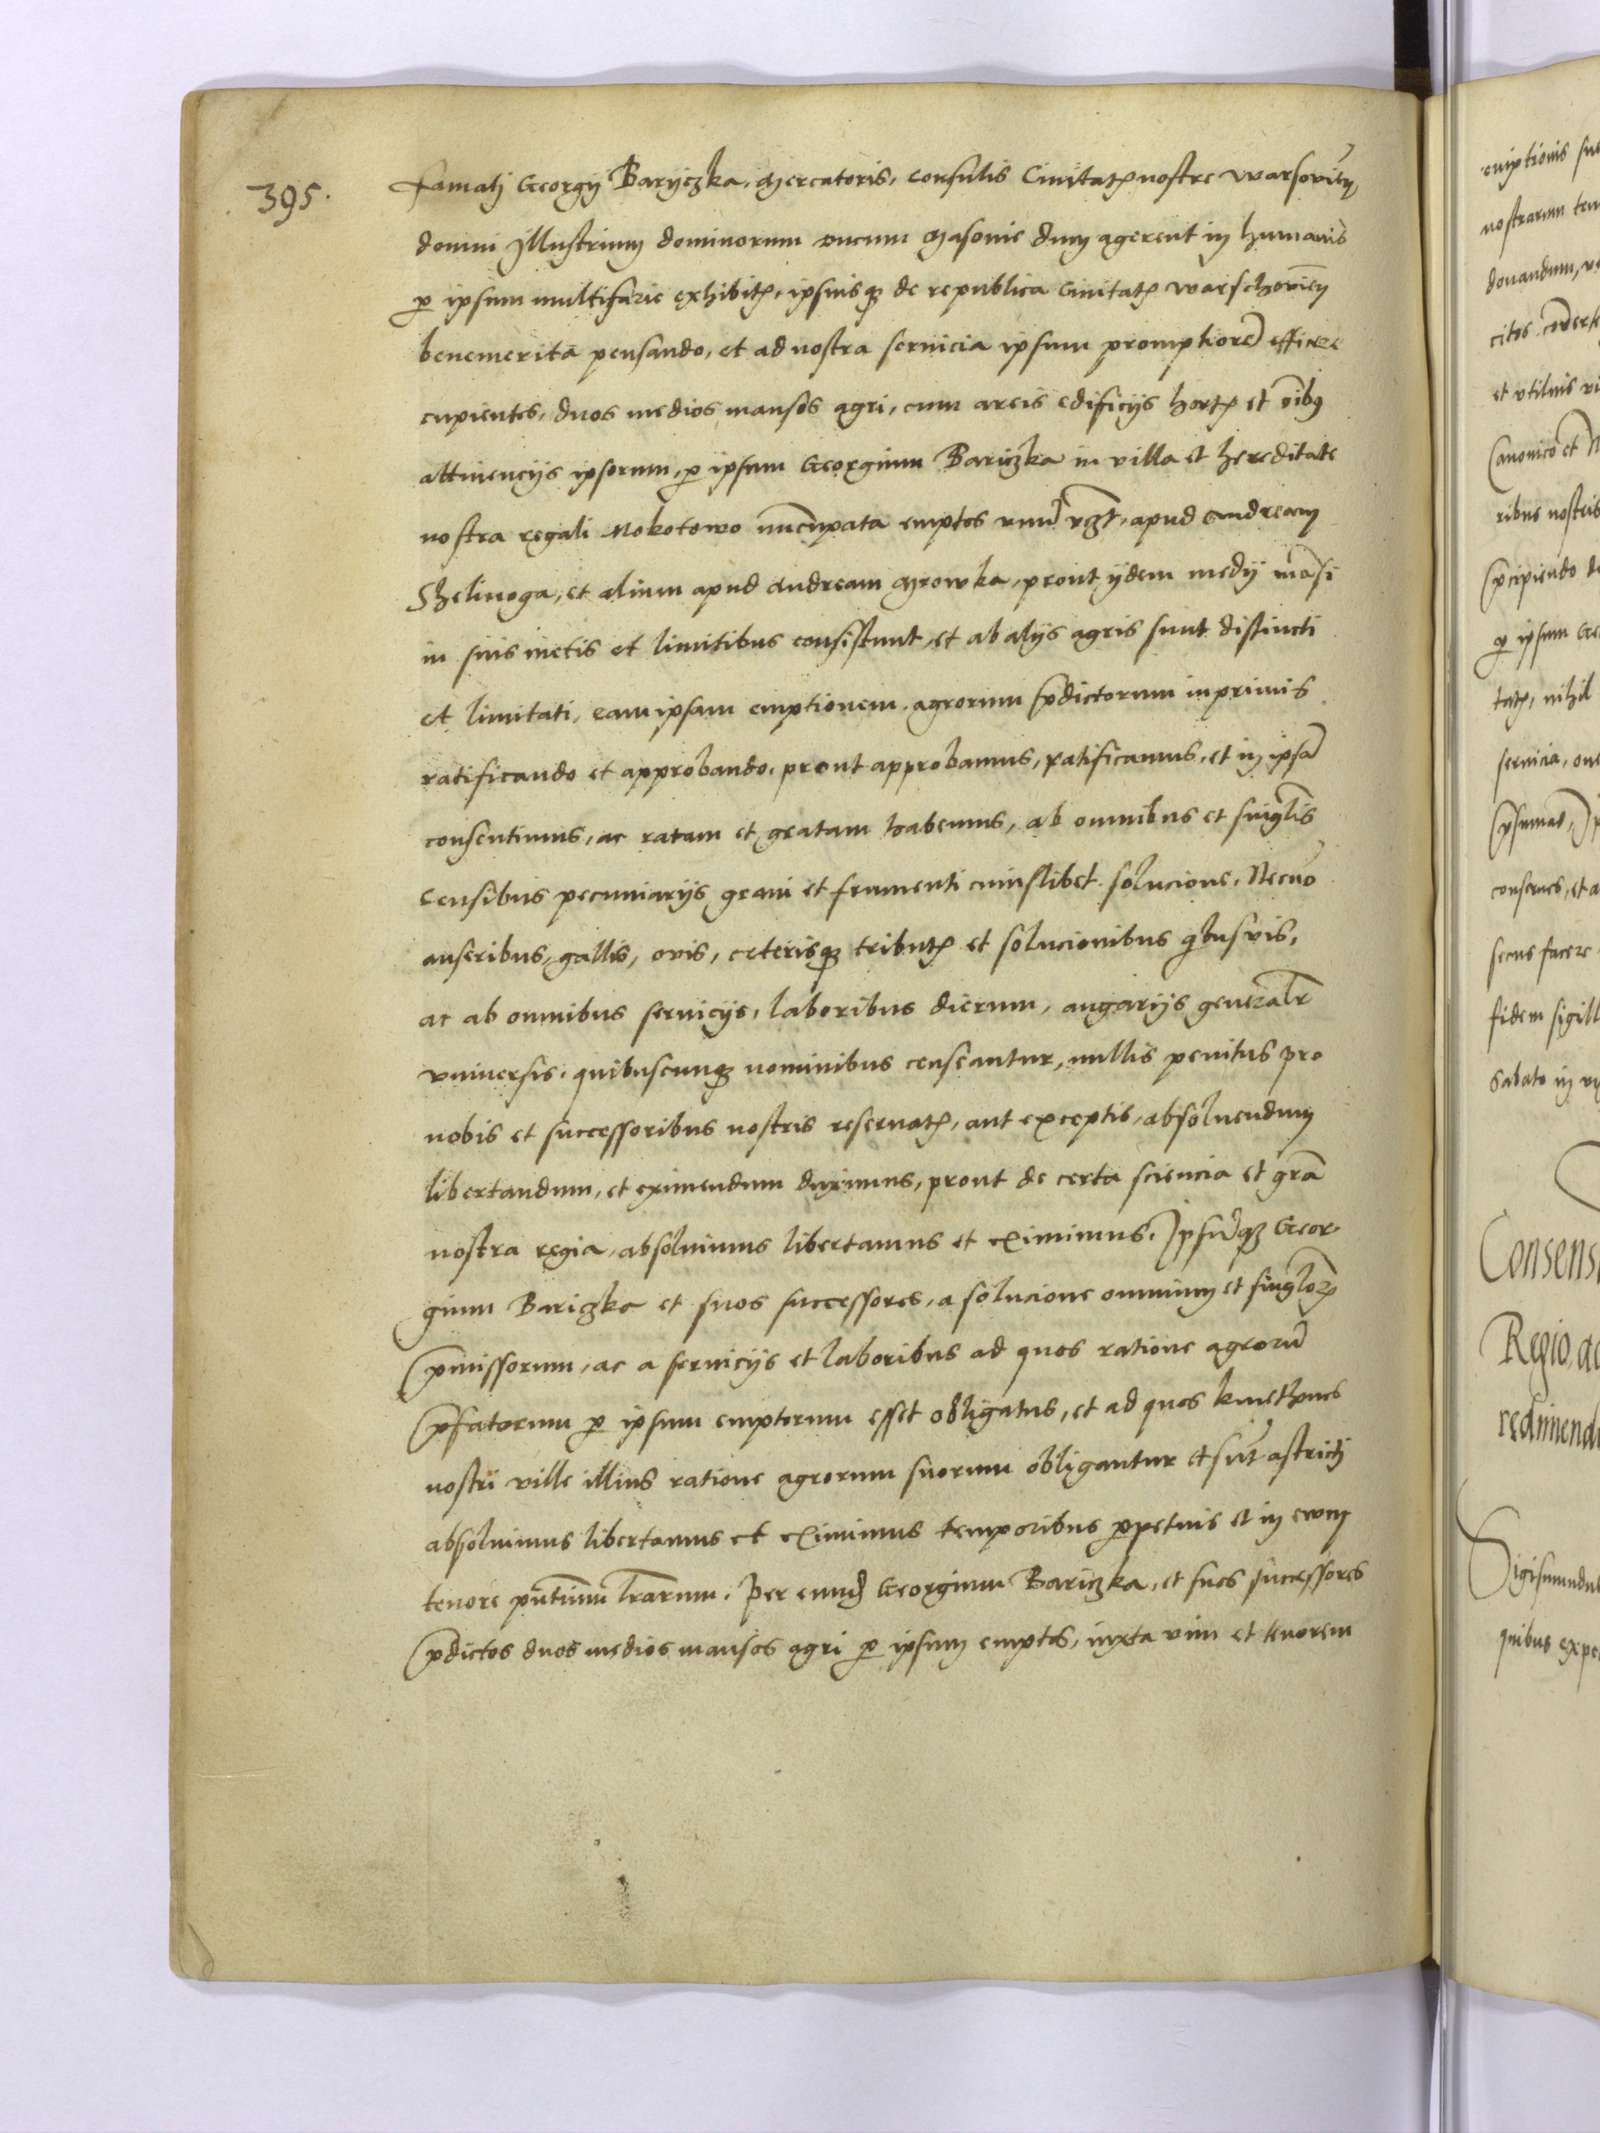 395.
Famatj Georgij Baryczka, Mercatoris, consulis Ciuitatꝭ nostre Warsouieñ,
domui Jllustrium dominorum ducum Masouie dum agerent in humanis
ꝑ ipsum multifarie exhibitꝭ, ipsiusqꝫ de republica Ciuitatꝭ Warschouieñ
benemerita pensando, et ad nostra seruicia ipsum promptiorē efficere
cupientes, duos medios mansos agri, cum areis edificijs hortꝭ et oībꝰ
attinencijs ipsorum, ꝑ ipsum Georgium Bariczka in villa et hereditate
nostra regali Mokotowo nūcupata emptos vnū vꝫt, apud Andream
Skelinoga, et alium apud Andream Mrowka, prout ijdem medij māsi
in suis metis et limitibus consistunt, et ab alijs agris sunt distincti
et limitati, eam ipsam emptionem agrorum p̄dictorum inprimis
ratificando et approbando, prout approbamus, ratificamus, et in ipsā
consentimus, ac ratam et gratam habemus, ab omnibus et singlis
Censibus pecuniarijs grani et frumenti cuiuslibet solucione, Necnō
anseribus, gallis, ovis, ceterisqꝫ tributꝭ et solucionibus qͥbusvis,
ac ab omnibus seruicijs, laboribus dierum, angarijs generalr̄
vniuersis, quibuscunqꝫ nominibus censeantur, nullis penitus pro
nobis et successoribus nostris reseruatꝭ, aut exceptis, absoluendum
libertandum, et eximendum duximus, prout de certa sciencia et grā
nostra regia, absoluimus libertamus et eximimus. Jpsūqꝫ Geor-
gium Bariczka et suos successores, a solucione omnium et singloꝝ
p̄missorum, ac a seruicijs et laboribus ad quos ratione agrorū
p̄fatorum ꝑ ipsum emptorum esset obligatus, et ad quos kmethones
nostri ville illius ratione agrorum suorum obligantur et sūt astricti
absoluimus libertamus et eximimus temporibus ꝑpetuis et in ewm
tenore pn̄tium lrārum. Per eund Georgium Bariczka, et suos successores
p̄dictos duos medios mansos agri ꝑ ipsum emptos, iuxta vim et tenorem
emptionis
nostrarum
donandum,
citos
et vtilius
Canonico et
ribus nostris
p̄cipiendo
ꝑ ipsum
tatꝭ, nihil
seruicia,
conserues, et
secus facere
fidem sigill
Sabato in
Consens
Regio,
redimend
Sigismundus
quibus expe